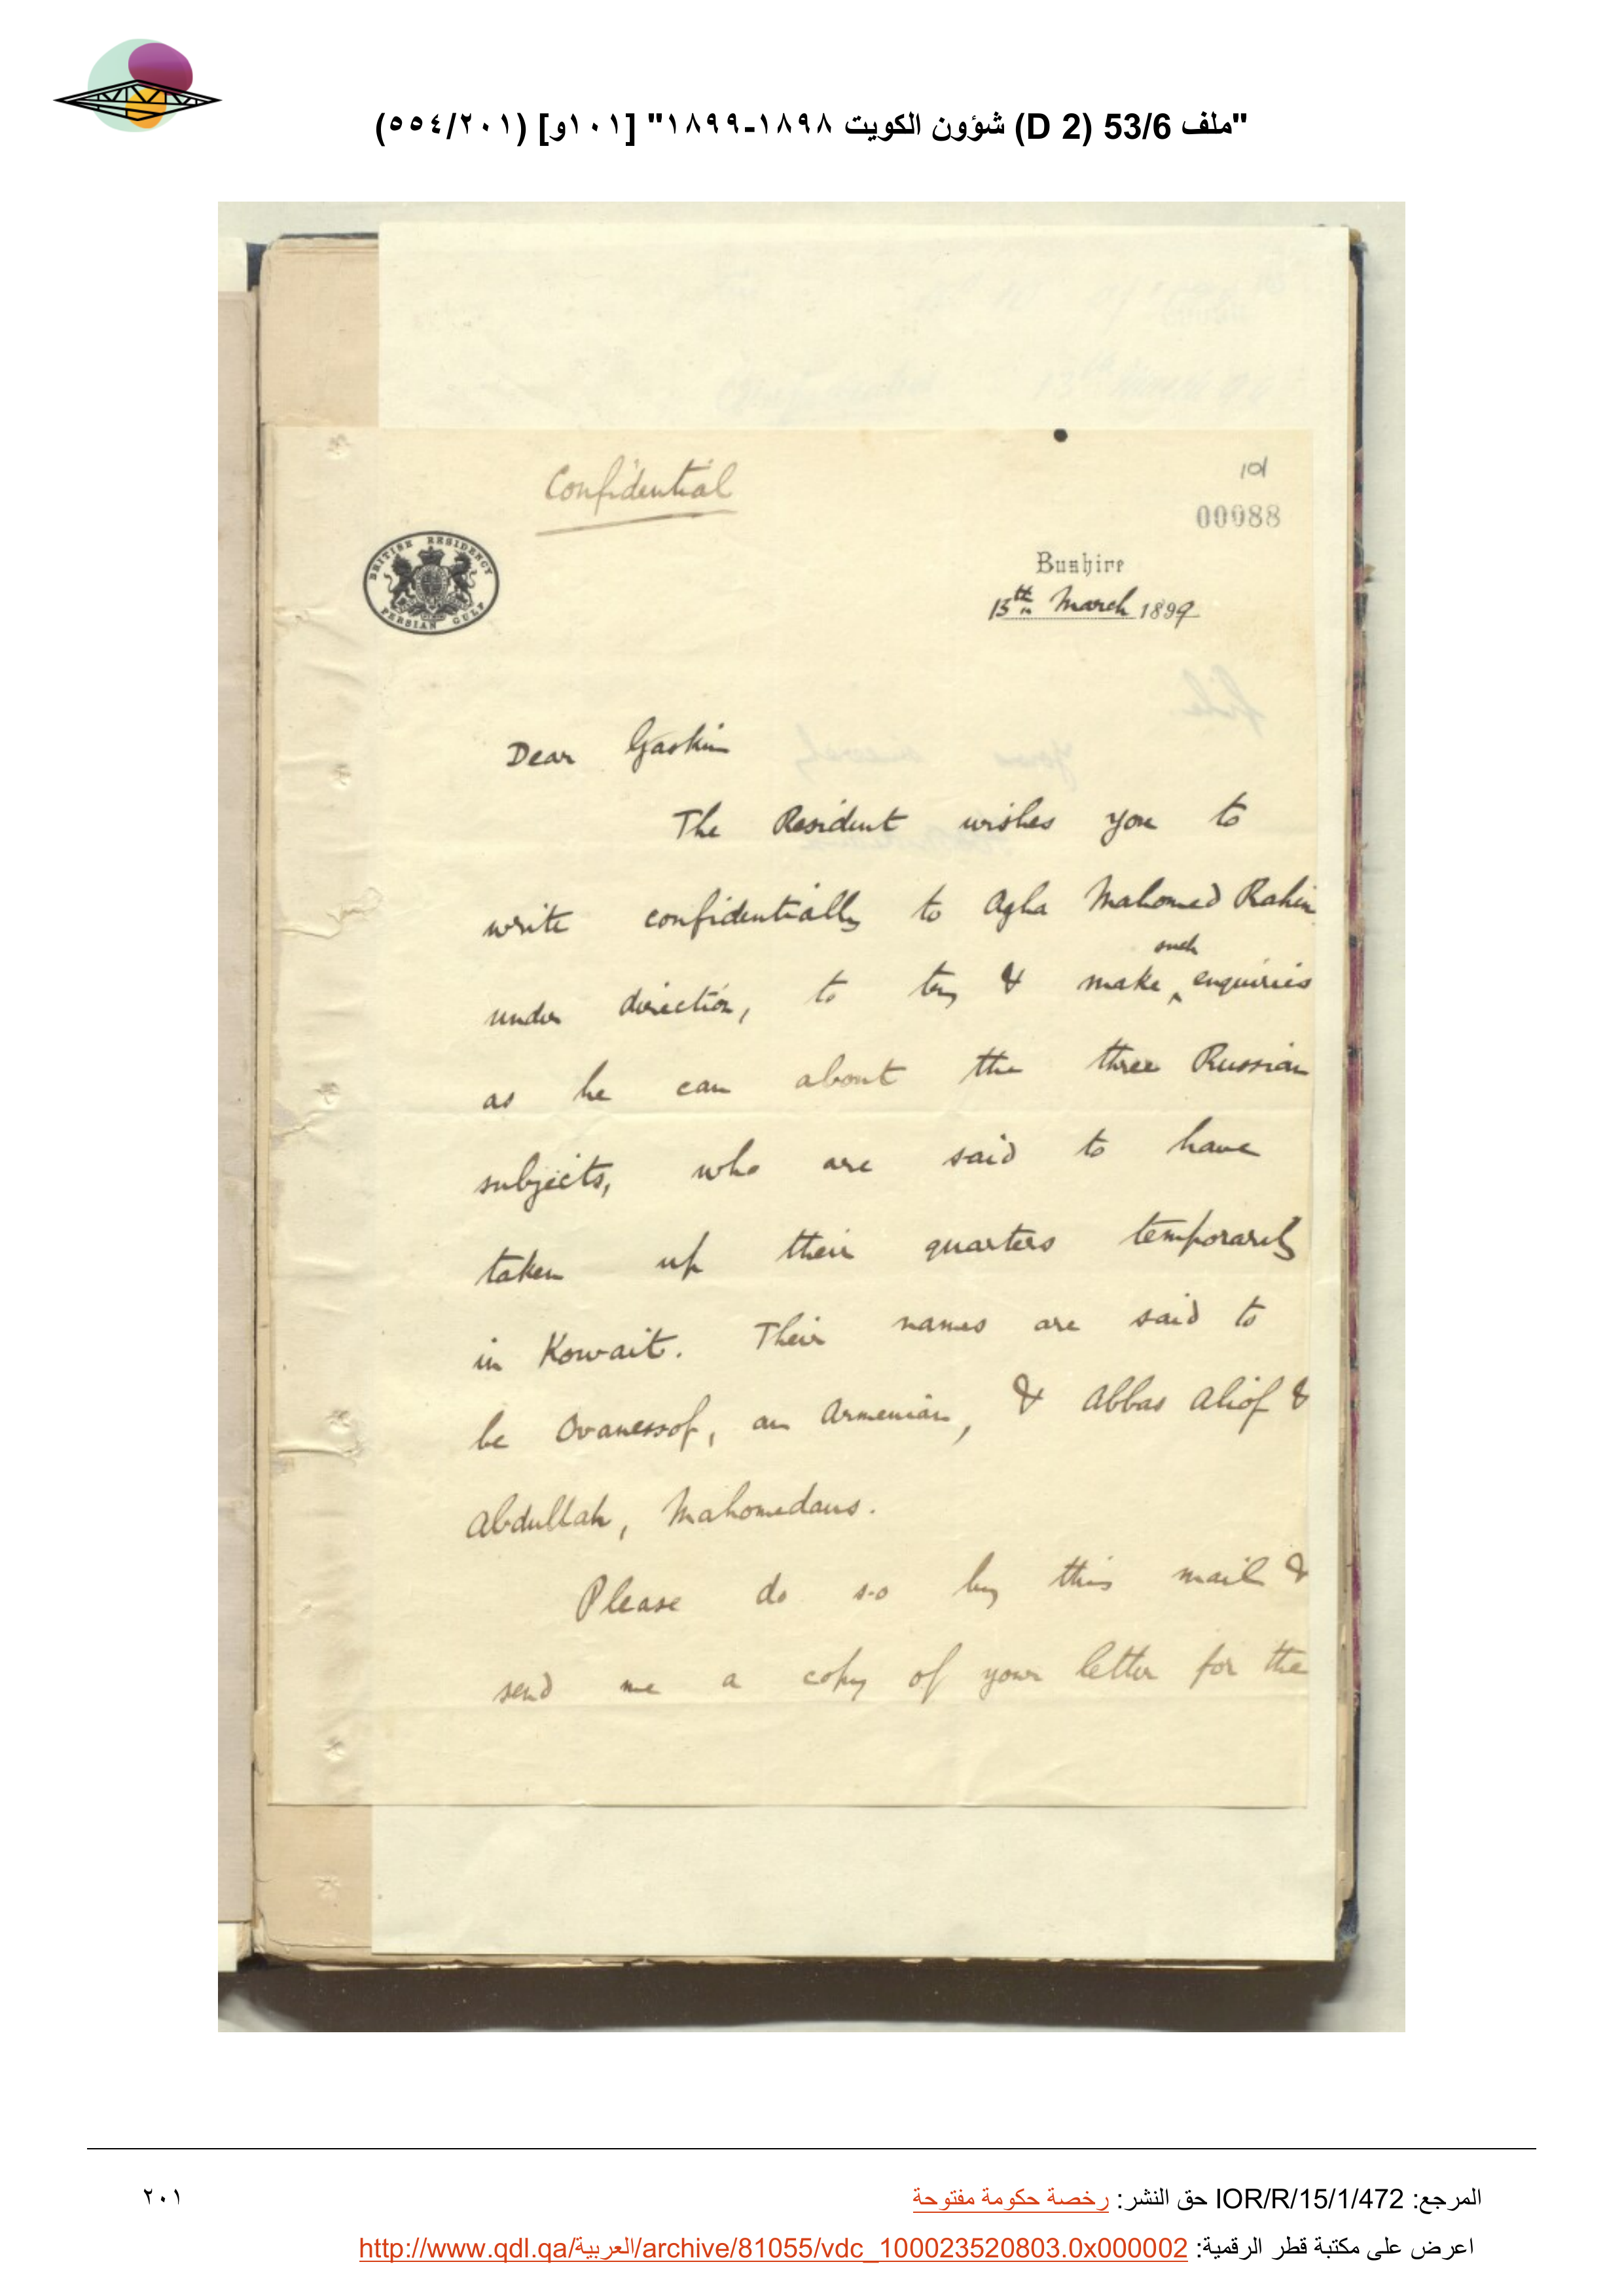 "ملف 53/6 (D 2) شؤون الكويت ١٨٩٨-١٨٩٩" [١٠١و] (٥٥٤/٢٠١)
Confidential
101
00088
BRITISH RESIDENCY
PERSIAN GULF
Bushire
15th March 1899
Dear Gaskin
The Resident wishes you to
write confidentially to Agha Mahomed Rahim
such
under direction, to try & make ‸ enquiries
as he can about the three Russian
subjects, who are said to have
taken up their quarters temporarily
in Kowait. Their names are said to
be Ovanessof, an Armenian, & Abbas Aliof &
Abdullah, Mahomedans.
Please do so by this mail &
send me a copy of your letter for the
المرجع: IOR/R/15/1/472 حق النشر: رخصة حكومة مفتوحة
٢٠١
اعرض على مكتبة قطر الرقمية: http://www.qdl.qa/العربية/archive/81055/vdc_100023520803.0x000002